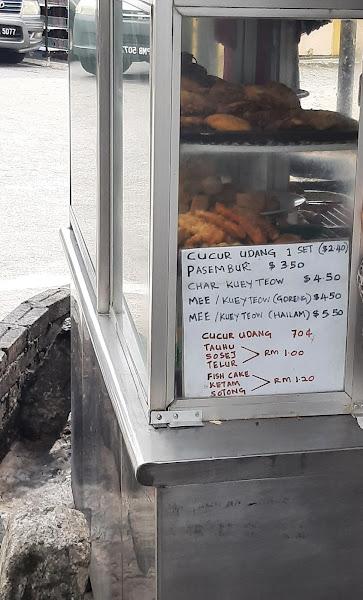 5077
PMB 5077
CUCUR UDANG 1 SET ($2.40)
PASEMBUR $3.50
CHAR KUEY TEOW $4.50
MEE / KUEY TEOW (GORENG) $4.50
MEE / KUEY TEOW (HAILAM) $5.50
CUCUR UDANG 70¢
TAUHU
SOSEJ > RM 1.00
TELUR
FISH CAKE
KETAM > RM 1.20
SOTONG